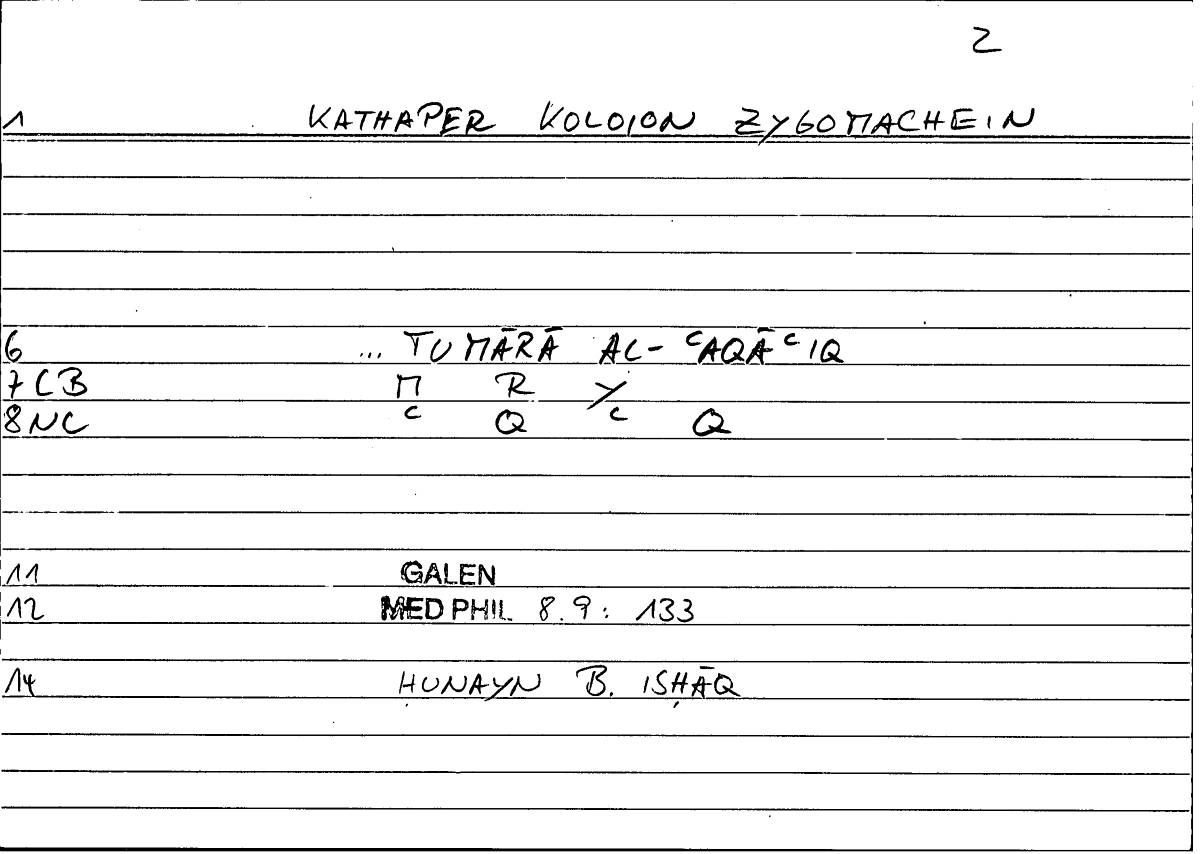 Z
1 KATHAPER KOLOION ZYGOMACHEIN
6 ... TUMĀRĀ AL-ᶜAQĀᶜIQ
7CB M R Y
8NC ᶜ Q ᶜ Q
11 GALEN
12 MED PHIL 8.9: 133
14 ḤUNAYN B. ISḤĀQ